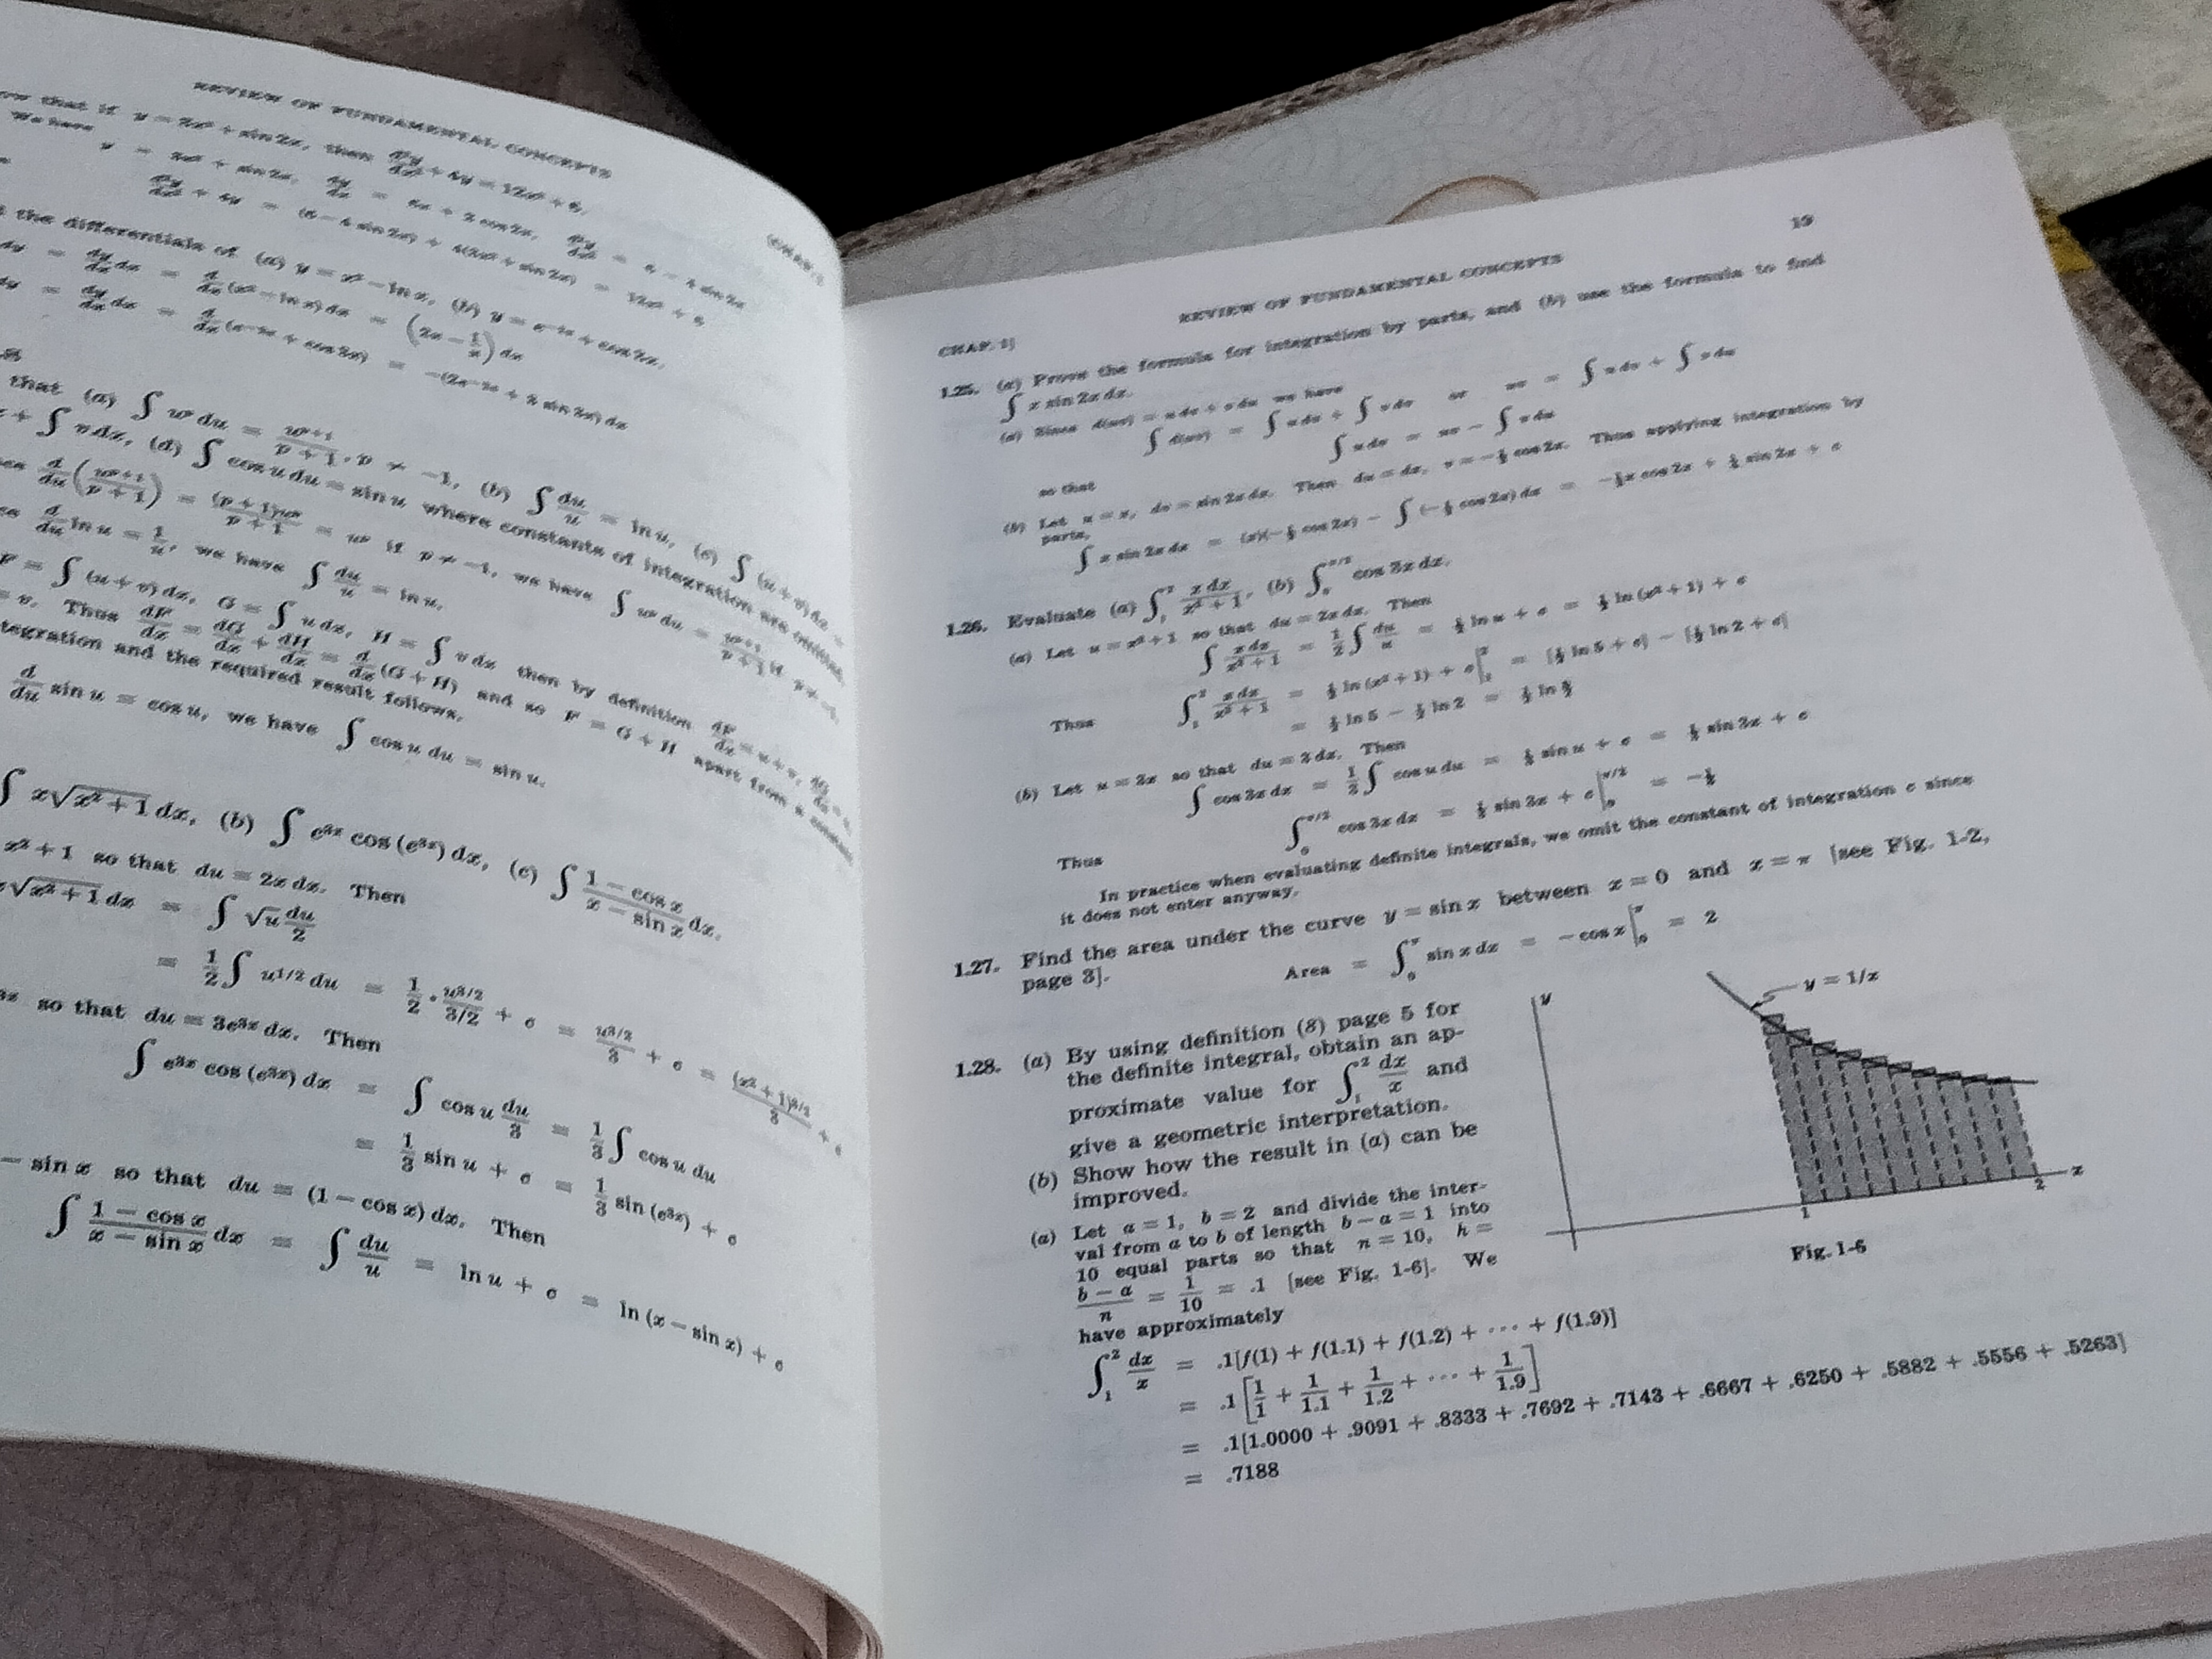 REVIEW OF FUNDAMENTAL CONCEPTS
[CHAP. 1
that if y = 3x² + sin 2x, then d²y/dx² + 4y = 12x² + 6.
We have
y = 3x² + sin 2x,
the differentials of (a) y = x² − ln x, (b) y = e⁻²ˣ + cos 2x.
that (a) ∫ uᵖ du = uᵖ⁺¹/(p+1), p ≠ −1, (b) ∫ du/u = ln u, (c) ∫ (u+v) dx =
+ ∫ v dx, (d) ∫ cos u du = sin u where constants of integration are omitted.
d/du (uᵖ⁺¹/(p+1)) = (p+1)uᵖ/(p+1) = uᵖ if p ≠ −1, we have ∫ uᵖ du = uᵖ⁺¹/(p+1) if p ≠ −1.
d/du ln u = 1/u, we have ∫ du/u = ln u.
F = ∫ (u+v) dx, G = ∫ u dx, H = ∫ v dx then by definition dF/dx = u + v,
= v. Thus dF/dx = dG/dx + dH/dx = d/dx (G + H) and so F = G + H apart from a constant
tegration and the required result follows.
d/du sin u = cos u, we have ∫ cos u du = sin u.
∫ x√(x²+1) dx, (b) ∫ e³ˣ cos (e³ˣ) dx, (c) ∫ (1 − cos x)/(x − sin x) dx.
x² + 1 so that du = 2x dx. Then
√(x²+1) dx = ∫ √u du/2
= 1/2 ∫ u^(1/2) du = 1/2 · u^(3/2)/(3/2) + c = u^(3/2)/3 + c = (x²+1)^(3/2)/3 + c
so that du = 3e³ˣ dx. Then
∫ e³ˣ cos (e³ˣ) dx = ∫ cos u du/3 = 1/3 ∫ cos u du
= 1/3 sin u + c = 1/3 sin (e³ˣ) + c
− sin x so that du = (1 − cos x) dx. Then
∫ (1 − cos x)/(x − sin x) dx = ∫ du/u = ln u + c = ln (x − sin x) + c
CHAP. 1]
REVIEW OF FUNDAMENTAL CONCEPTS
13
1.25. (a) Prove the formula for integration by parts, and (b) use the formula to find
∫ x sin 2x dx.
(a) Since d(uv) = u dv + v du we have
∫ d(uv) = ∫ u dv + ∫ v du or uv = ∫ u dv + ∫ v du
so that
∫ u dv = uv − ∫ v du
(b) Let u = x, dv = sin 2x dx. Then du = dx, v = −½ cos 2x. Thus applying integration by
parts,
∫ x sin 2x dx = (x)(−½ cos 2x) − ∫ (−½ cos 2x) dx = −½x cos 2x + ¼ sin 2x + c
1.26. Evaluate (a) ∫₁² x dx/(x²+1), (b) ∫₀^(π/2) cos 3x dx.
(a) Let u = x² + 1 so that du = 2x dx. Then
∫ x dx/(x²+1) = 1/2 ∫ du/u = ½ ln u + c = ½ ln (x²+1) + c
Thus ∫₁² x dx/(x²+1) = ½ ln (x²+1) + c |₁² = [½ ln 5 + c] − [½ ln 2 + c]
= ½ ln 5 − ½ ln 2 = ½ ln 5/2
(b) Let u = 3x so that du = 3 dx. Then
∫ cos 3x dx = 1/3 ∫ cos u du = ⅓ sin u + c = ⅓ sin 3x + c
Thus ∫₀^(π/2) cos 3x dx = ⅓ sin 3x + c |₀^(π/2) = −⅓
In practice when evaluating definite integrals, we omit the constant of integration c since
it does not enter anyway.
1.27. Find the area under the curve y = sin x between x = 0 and x = π [see Fig. 1-2,
page 3].
Area = ∫₀^π sin x dx = −cos x |₀^π = 2
1.28. (a) By using definition (8) page 5 for
the definite integral, obtain an ap-
proximate value for ∫₁² dx/x and
give a geometric interpretation.
(b) Show how the result in (a) can be
improved.
(a) Let a = 1, b = 2 and divide the inter-
val from a to b of length b − a = 1 into
10 equal parts so that n = 10, h =
(b − a)/n = 1/10 = .1 [see Fig. 1-6]. We
have approximately
y
y = 1/x
1
2
x
Fig. 1-6
∫₁² dx/x = .1[f(1) + f(1.1) + f(1.2) + ··· + f(1.9)]
= .1[1/1 + 1/1.1 + 1/1.2 + ··· + 1/1.9]
= .1[1.0000 + .9091 + .8333 + .7692 + .7143 + .6667 + .6250 + .5882 + .5556 + .5263]
= .7188